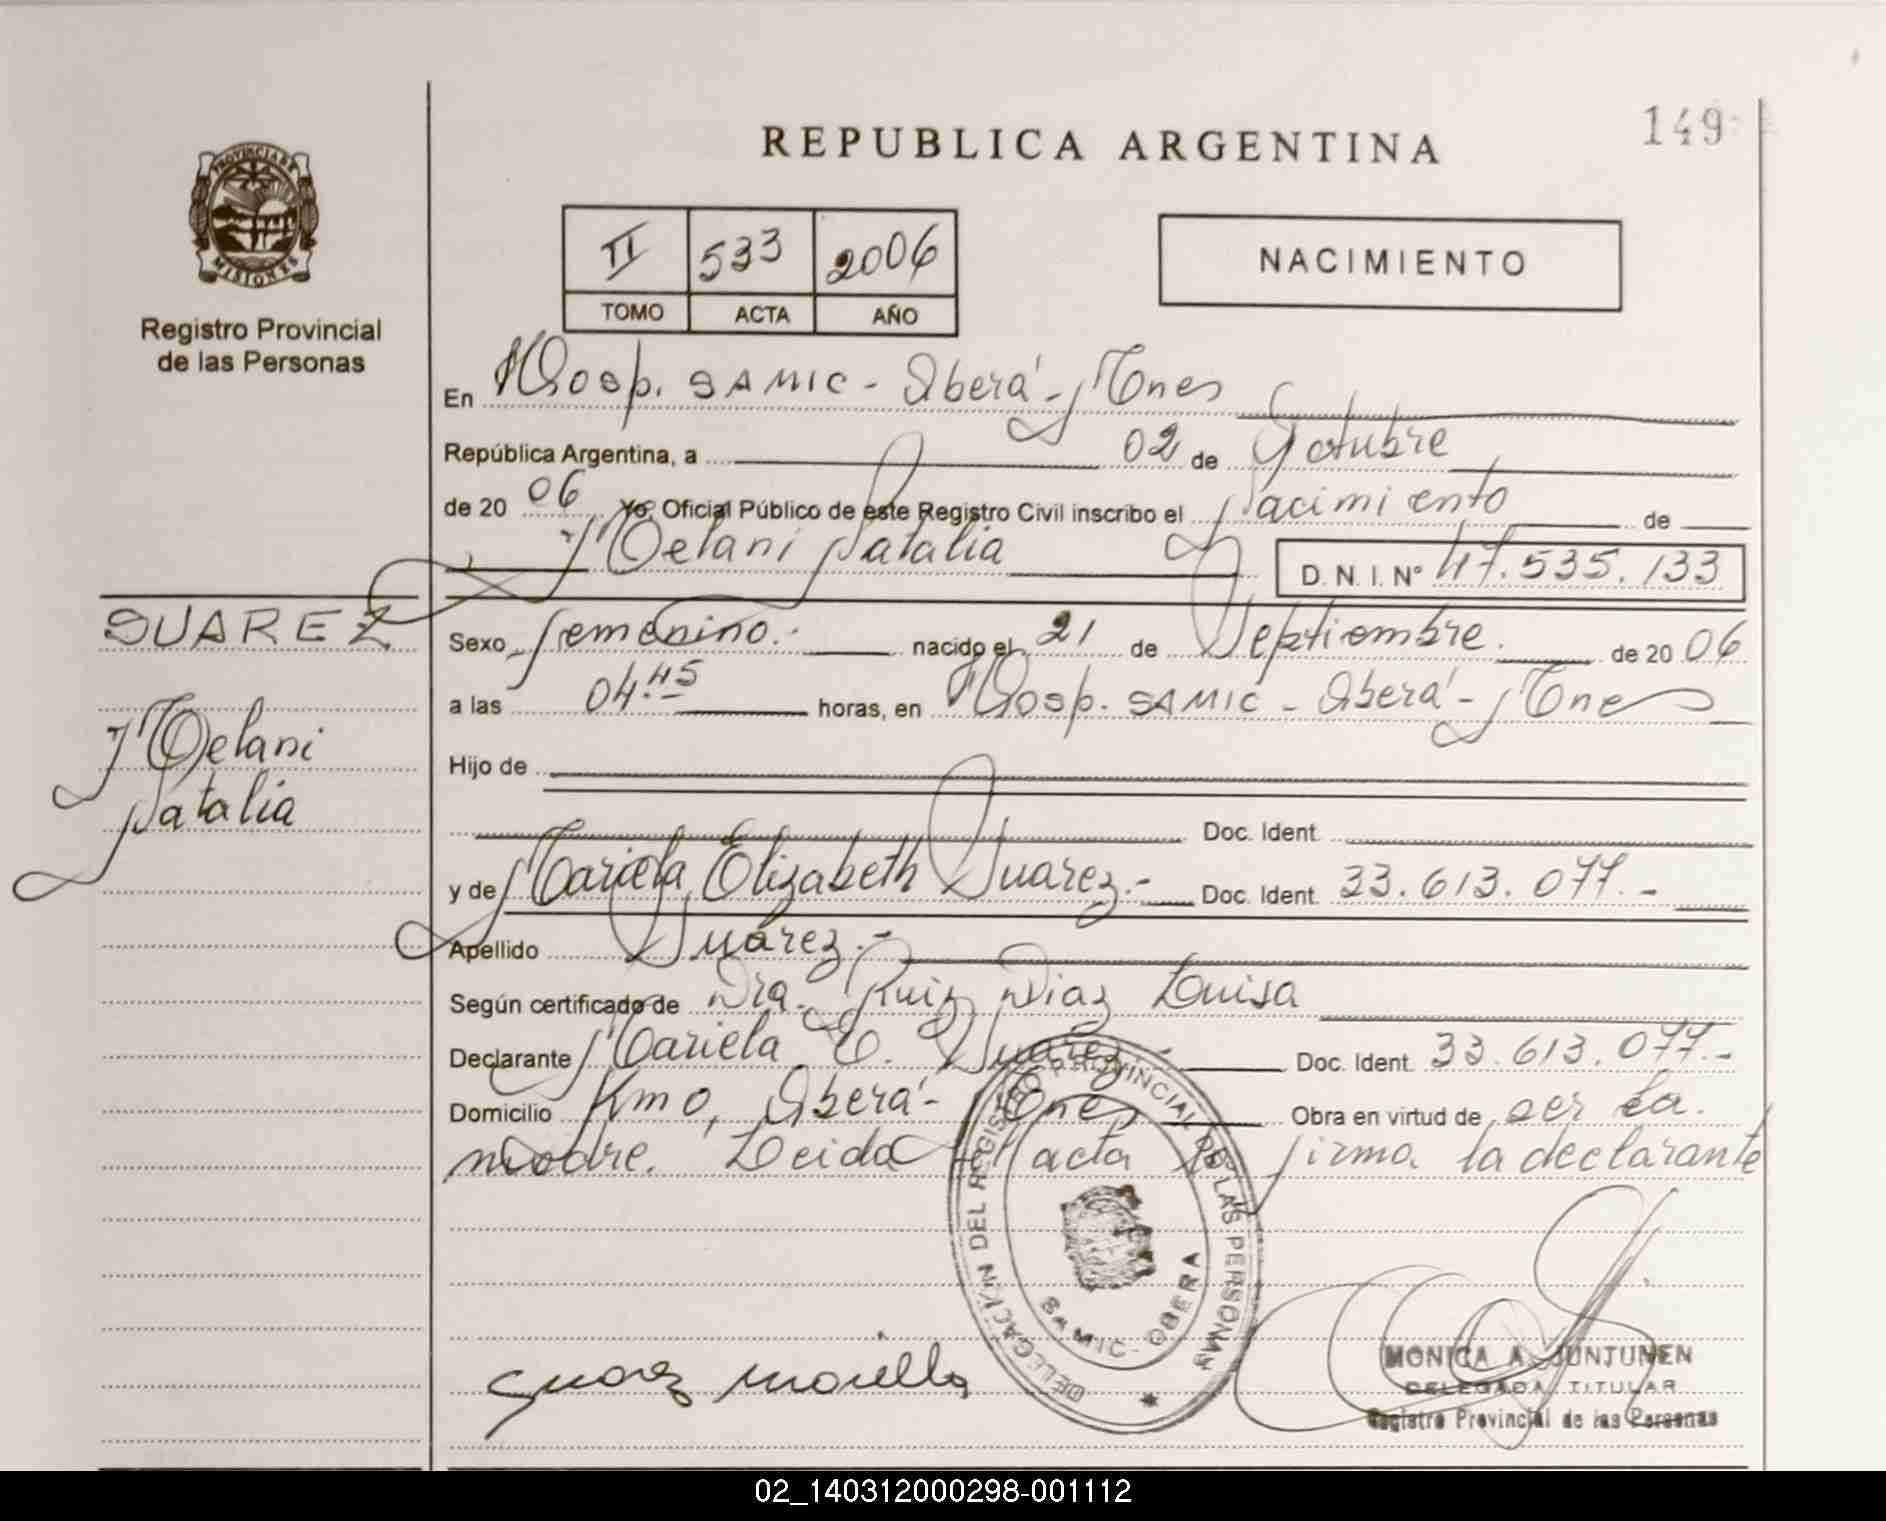 149
REPUBLICA ARGENTINA
PROVINCIA DE
MISIONES
Registro Provincial
de las Personas
II 533 2006
TOMO ACTA AÑO
NACIMIENTO
En Hosp. SAMIC - Oberá - Mnes
República Argentina, a 02 de Octubre
de 20 06 Yo, Oficial Público de este Registro Civil inscribo el Nacimiento de
Melani Natalia D. N. I. Nº 47.535.133
SUAREZ
Melani
Natalia
Sexo femenino. nacido el 21 de Septiembre. de 20 06
a las 04.45 horas, en Hosp. SAMIC - Oberá - Mnes
Hijo de
Doc. Ident.
y de Mariela Elizabeth Suarez.- Doc. Ident. 33.613.077.-
Apellido Suárez.-
Según certificado de Dra. Ruiz Diaz Luisa
Declarante Mariela E. Suarez.- Doc. Ident. 33.613.077.-
Domicilio Km 0, Oberá - Mnes Obra en virtud de ser la
madre. Leida el acta la firma la declarante
DELEGACION DEL REGISTRO PROVINCIAL DE LAS PERSONAS
SAMIC - OBERA
Suarez mariella
MONICA A. JUNTUNEN
DELEGADA TITULAR
Registro Provincial de las Personas
02_140312000298-001112